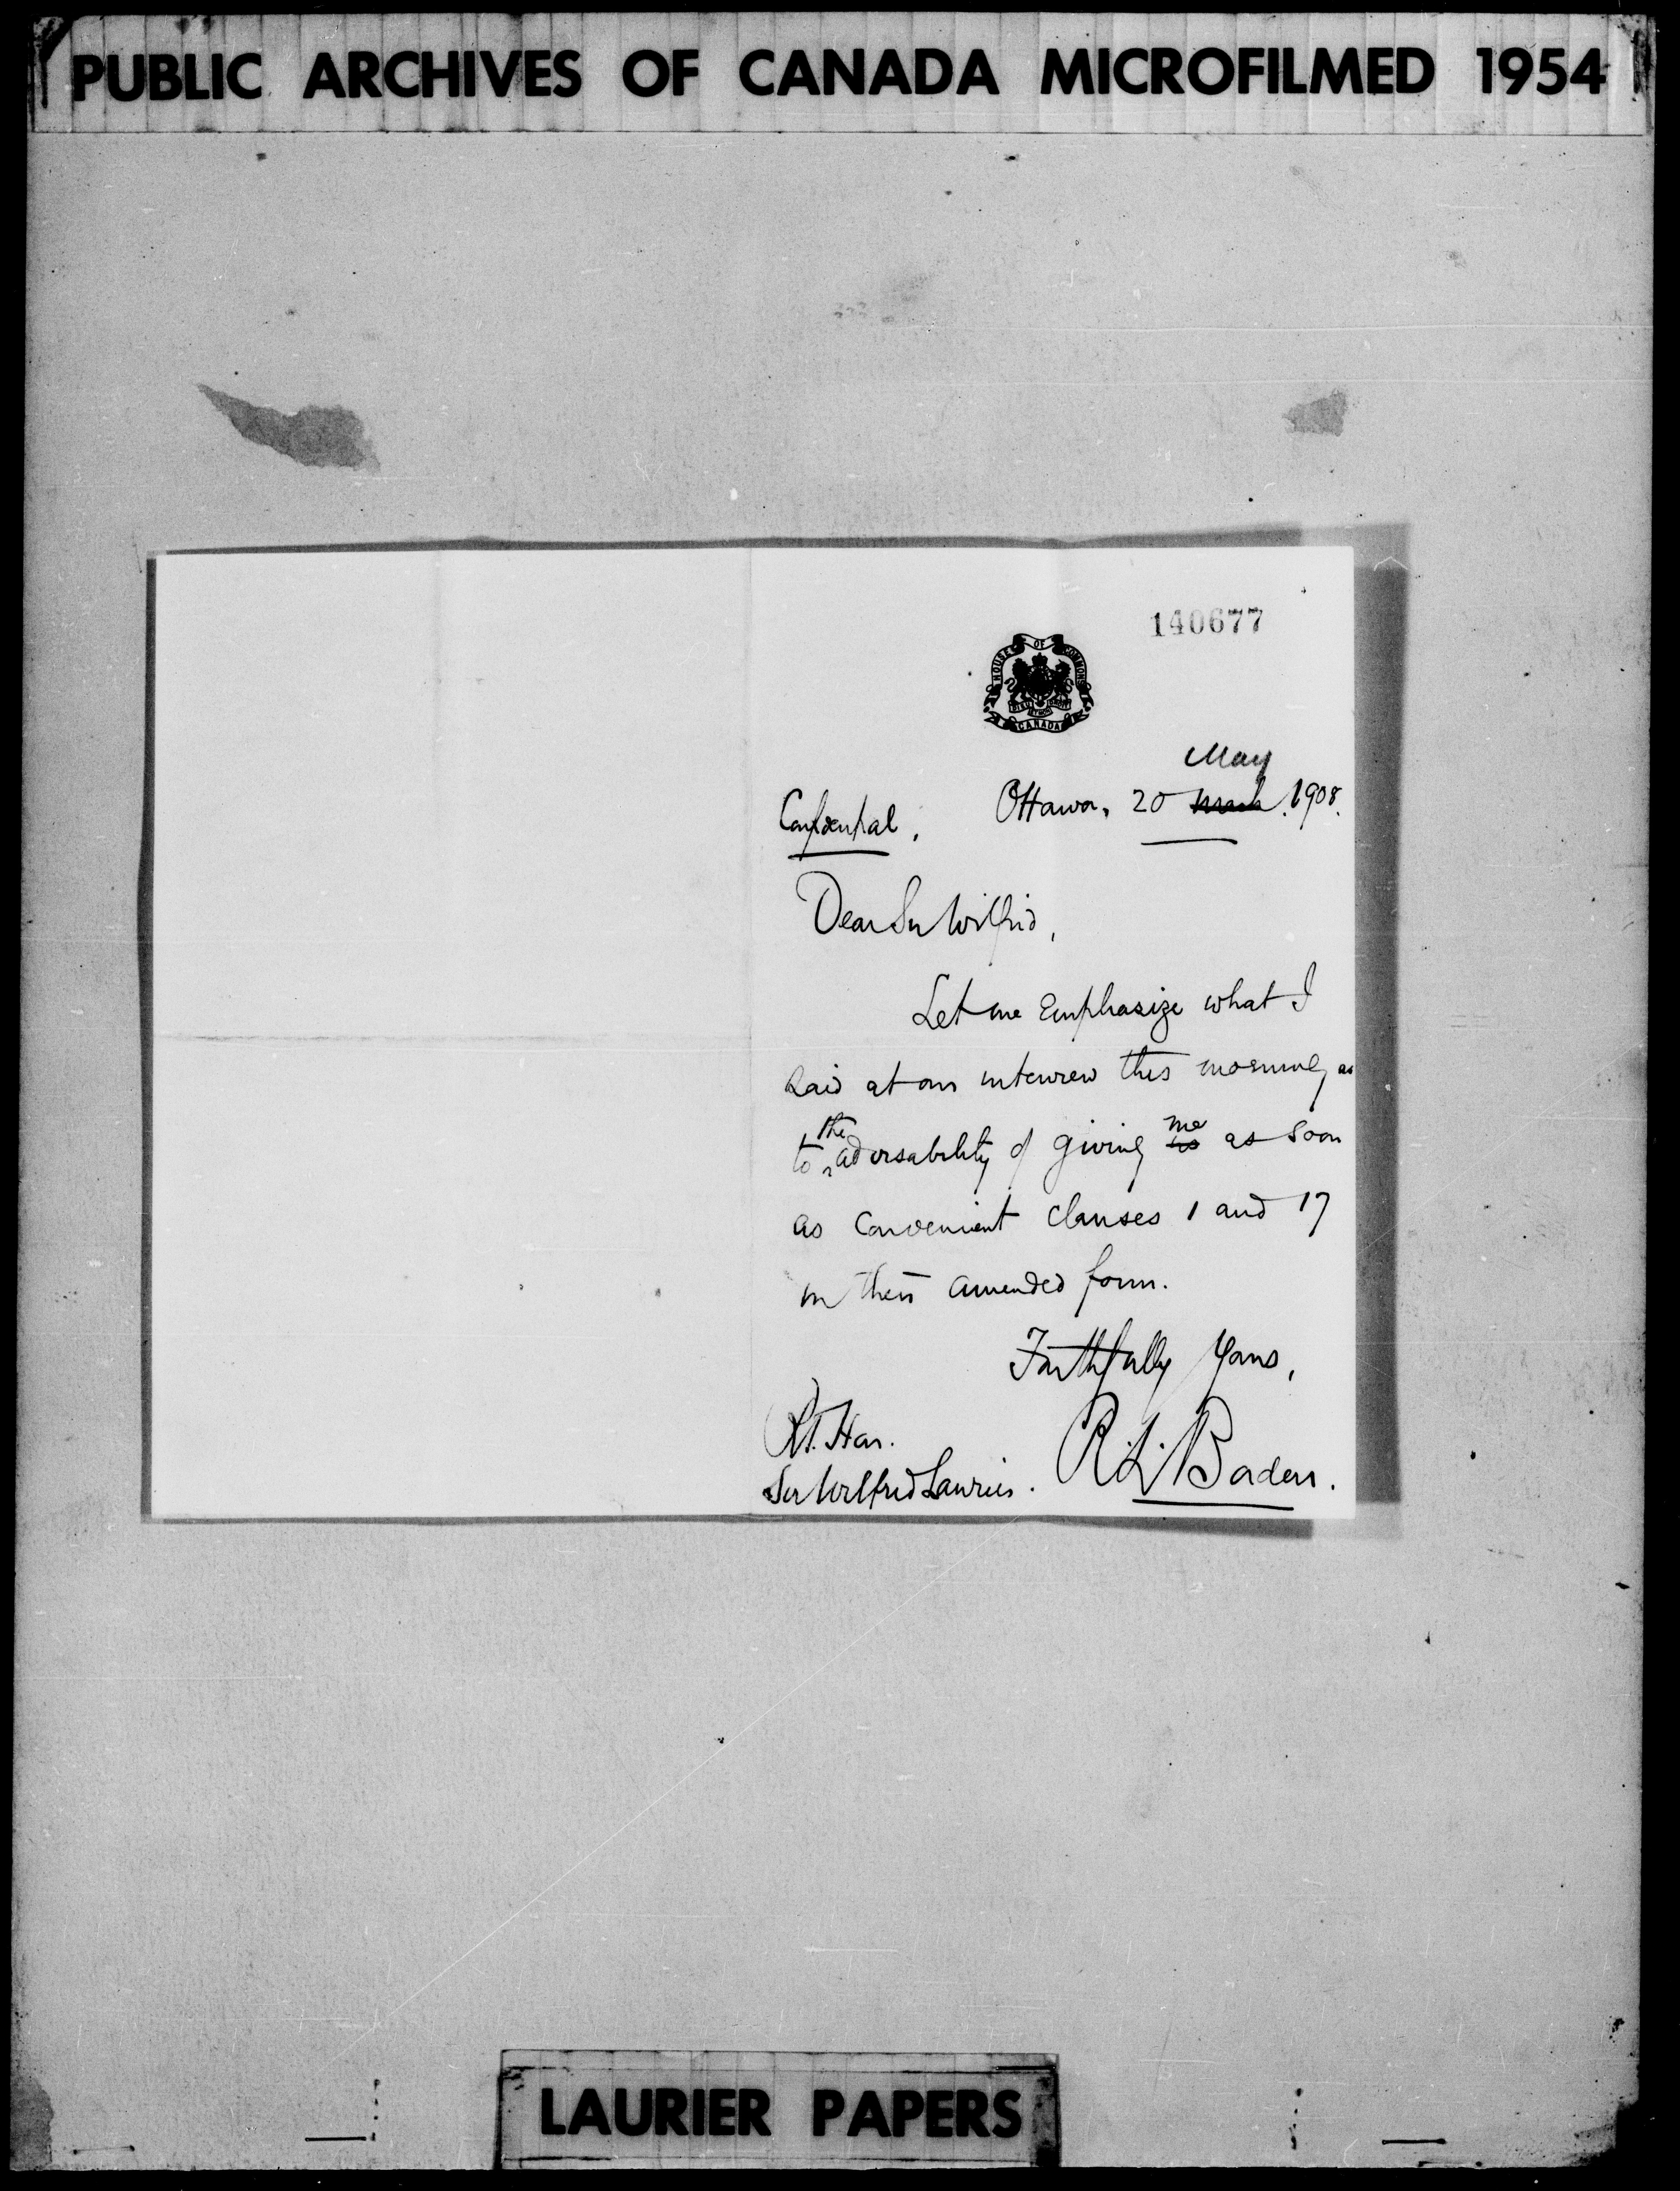 PUBLIC ARCHIVES OF CANADA MICROFILMED 1954
140677
HOUSE OF COMMONS
DIEU ET MON DROIT
CANADA
May
Confidential. Ottawa, 20 March. 1908.
Dear Sir Wilfrid,
Let me Emphasize what I
said at our interview this morning as
to the advisability of giving us me as soon
as convenient clauses 1 and 17
in their amended form.
Faithfully Yours,
Rt. Hon.
Sir Wilfrid Laurier. R. L. Borden.
LAURIER PAPERS